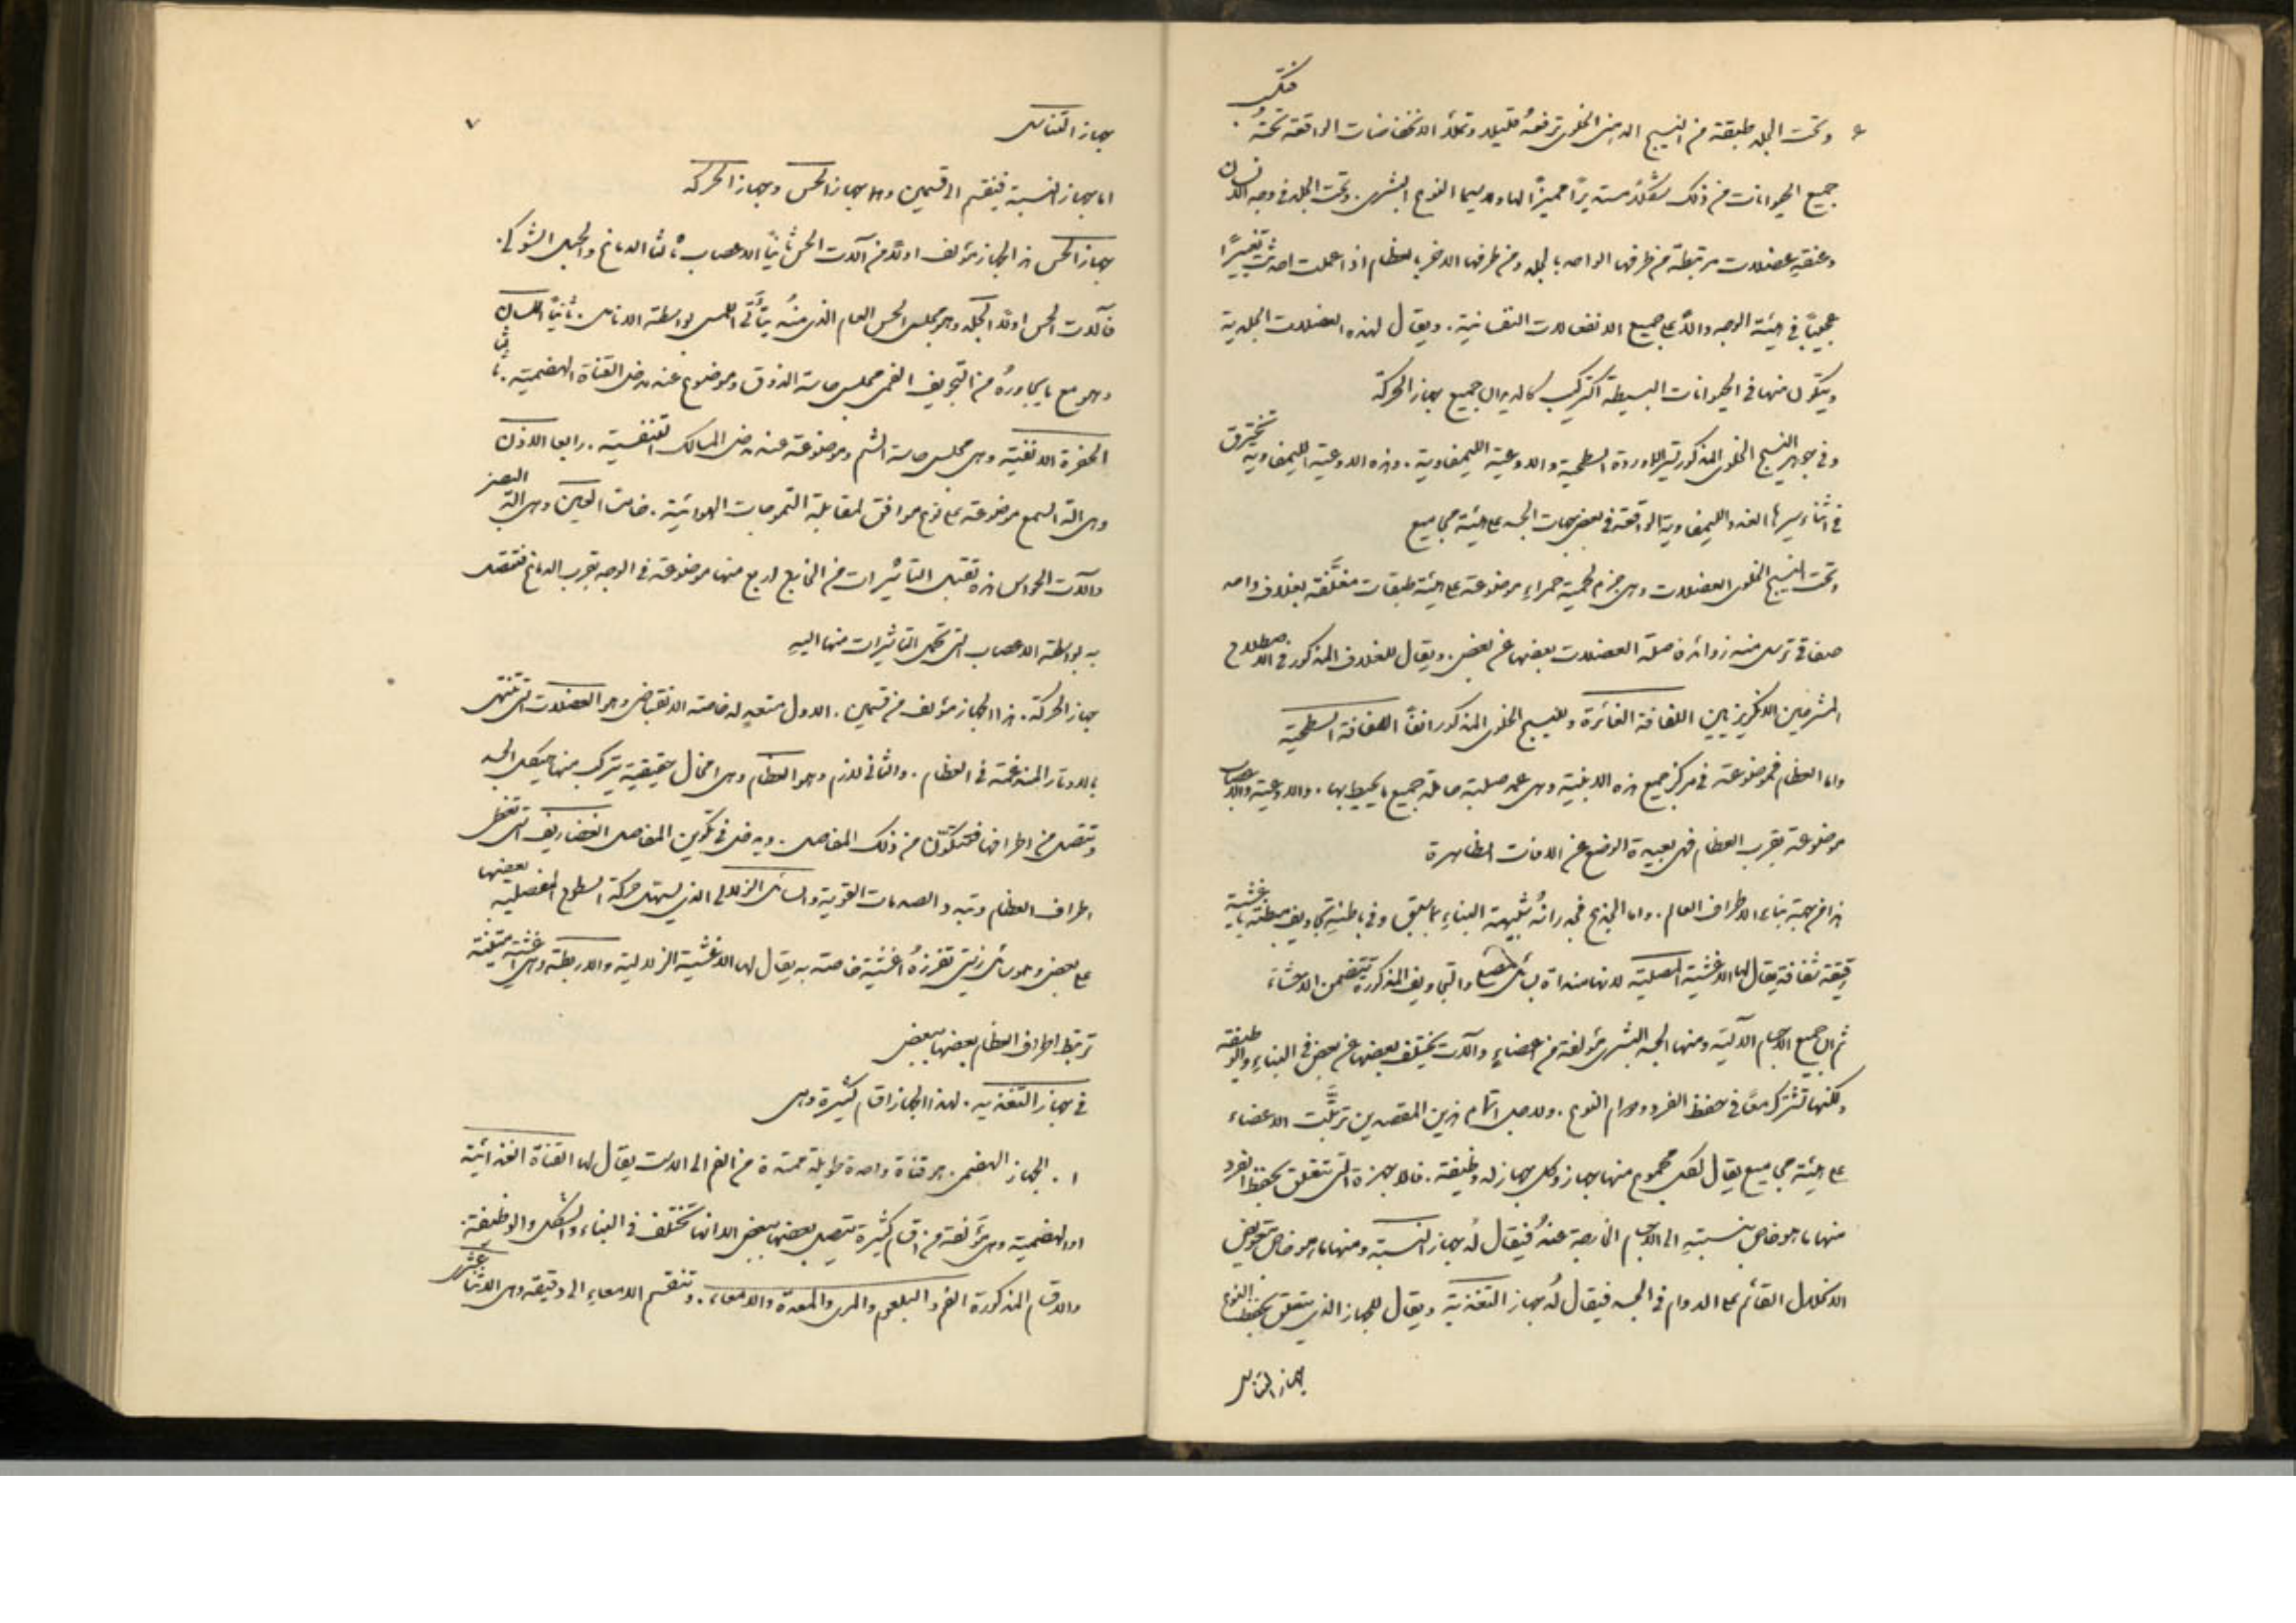 ٦ وتحت الجلد طبقة من النسيج الدهني الخلوي ترفعهُ قليلا وتملأ الانخفاضات الواقعة تحتهُ فتكسب
جميع الحيوانات من ذلك شكلاً مستديراً مميزاً لها ولا سيما النوع البشري. وتحت الجلد في وجه الانسان
وعنقهِ عضلات مرتبطة من طرفها الواحد بالجلد ومن طرفها الاخر بالعظام اذا عملت احدثت تغييراً
عجيباً في هيئة الوجه دالاً على جميع الانفعالات النفسانية. ويقال لهذه العضلات الجلدية
ويتكون منها في الحيوانات البسيطة التركيب كالديدان جميع جهاز الحركة
وفي جوهر النسيج الخلوي المذكور تسير الاوردة السطحية والاوعية الليمفاوية. وهذه الاوعية الليمفاوية تخترق
في اثناء سيرها الغدد الليمفاوية الواقعة في بعض جهات الجسد على هيئة مجاميع
وتحت النسيج الخلوي العضلات وهي حزم لحمية حمراء موضوعة على هيئة طبقات مغلَّفة بغلاف واحد
صفاقي ترسل منه زوائد فاصلة العضلات بعضها عن بعض. ويقال للغلاف المذكور في اصطلاح
المشرحين الانكليزيين اللفافة الغائرة وللنسيج الخلوي المذكور انفاً اللفافة السطحية
واما العظام فموضوعة في مركز جميع هذه الابنية وهي عمد صلبة حاملة جميع ما يحيط بها. والاوعية والاعصاب
موضوعة بقرب العظام فهي بعيدة الوضع عن الافات الظاهرة
هذا من جهة بناء الاطراف العام. واما الجذع فجدرانهُ شبيهة البناء بما سبق وفي باطنهِ تجاويف مبطنة باغشية
رقيقة شفافة يقال لها الاغشية المصلية لانها منداة بسائل مصلي والتجاويف المذكورة تتضمن الاحشاء
ثم ان جميع الاجسام الآلية ومنها الجسد البشري مؤلفة من اعضاء وآلات يختلف بعضها عن بعض في البناء والوظيفة
ولكنها تشترك معاً في حفظ الفرد ودوام النوع. ولاجل اتمام هذين المقصدين ترتَّبت الاعضاء
على هيئة مجاميع يقال لكل مجموع منها جهاز ولكل جهاز له وظيفة. فالاجهزة التي تتعلق بحفظ الفرد
منها ما هو خاص بنسبتهِ الى الاجسام الخارجة عنهُ فيقال لهُ جهاز النسبة ومنها ما هو خاص بتعويض
الانحلال القائم على الدوام في الجسد فيقال لهُ جهاز التغذية ويقال للجهاز الذي يتعلق بحفظ النوع
جهاز التناسل
٧
جهاز التناسل
اما جهاز النسبة فينقسم الى قسمين وهما جهاز الحس وجهاز الحركة
جهاز الحس هذا الجهاز مؤلف اولاً من آلات الحس ثانياً الاعصاب ثالثاً الدماغ والحبل الشوكي.
فآلات الحس اولاً الجلد وهو مجلس الحس العام الذي منهُ يتأَتَّى اللمس بواسطة الانامل. ثانياً اللسان
وهو مع ما يجاورهُ من التجويف الفمي مجلس حاسة الذوق وموضوع عند مدخل القناة الهضمية. ثالثاً
الحفرة الانفية وهي مجلس حاسة الشم وموضوعة عند مدخل المسالك التنفسية. رابعا الاذن
وهي الة السمع موضوعة على نوع موافق لمقابلة التموجات الهوائية. خامسا العين وهي الة البصر
والآت الحواس هذه تقبل التأثيرات من الخارج اربع منها موضوعة في الوجه بقرب الدماغ فتتصل
به بواسطة الاعصاب التي تحمل التاثيرات منها اليهِ
جهاز الحركة. هذا الجهاز مؤلف من قسمين. الاول متعدٍ له خاصة الانقباض وهو العضلات التي تنتهي
بالاوتار المندغمة في العظام. والثاني لازم وهو العظام وهي امخال حقيقية يتركب منها هيكل الجسد
وتتصل من اطرافها فتتكوَّن من ذلك المفاصل. ويدخل في تكوين المفاصل الغضاريف التي تغطي
اطراف العظام وتبدد الصدمات القوية والسائل الزلالي الذي يسهل حركة السطوح المفصلية بعضها
على بعض وهو سائل زيتي تفرزهُ اغشية خاصة به يقال لها الاغشية الزلالية والاربطة وهي اغشية متينة
تربط اطراف العظام بعضها ببعض
في جهاز التغذية. لهذا الجهاز اقسام كثيرة وهي
١. الجهاز الهضمي. هو قناة واحدة طويلة ممتدة من الفم الى الاست يقال لها القناة الغذائية
او الهضمية وهي مؤَلفة من اقسام كثيرة متصل بعضها ببعض الا انها تختلف في البناء والشكل والوظيفة.
والاقسام المذكورة الفم والبلعوم والمري والمعدة والامعاء. وتنقسم الامعاء الى دقيقة وهي الاثنا عشري